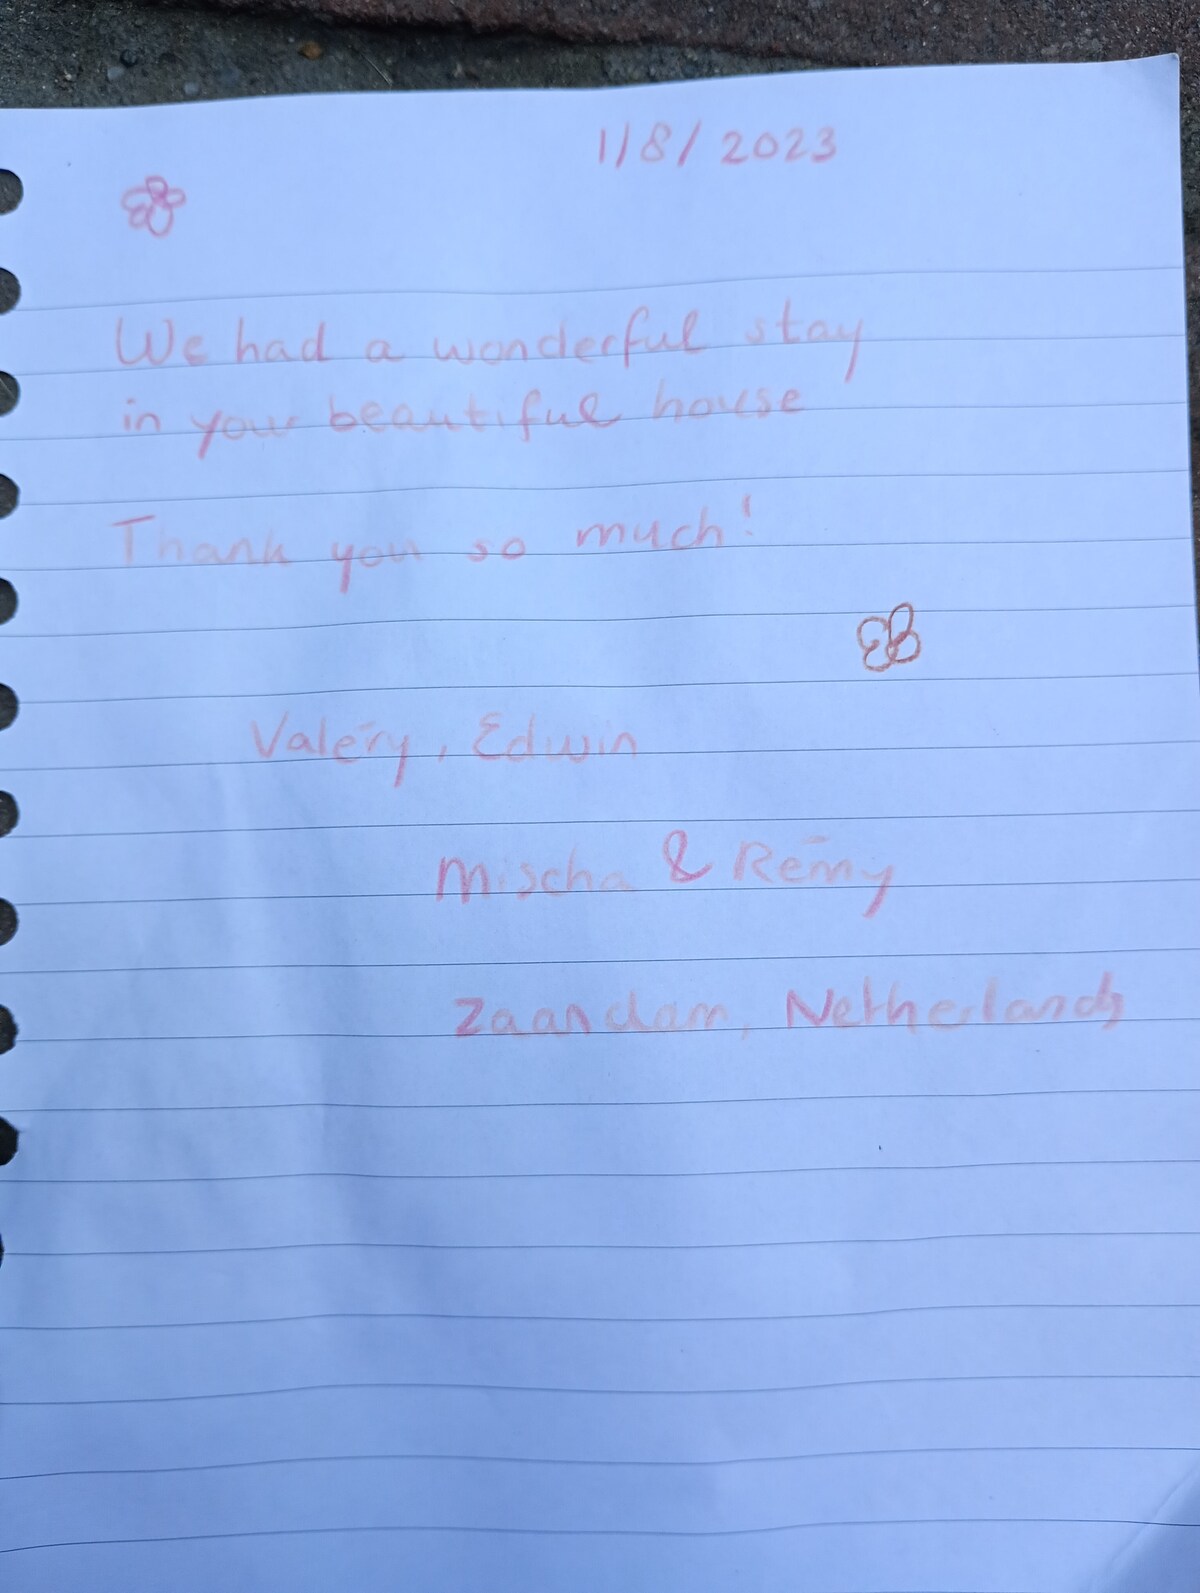 1/8/2023
We had a wonderful stay
in your beautiful house
Thank you so much!
Valéry, Edwin
Mischa & Rémy
Zaandam, Netherlands